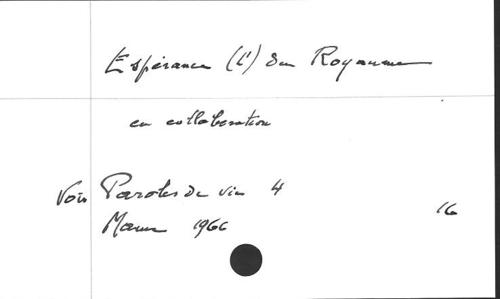 Espérance (L') du Royaume
en collaboration
Voir Paroles de vie 4
Mame 1966
16